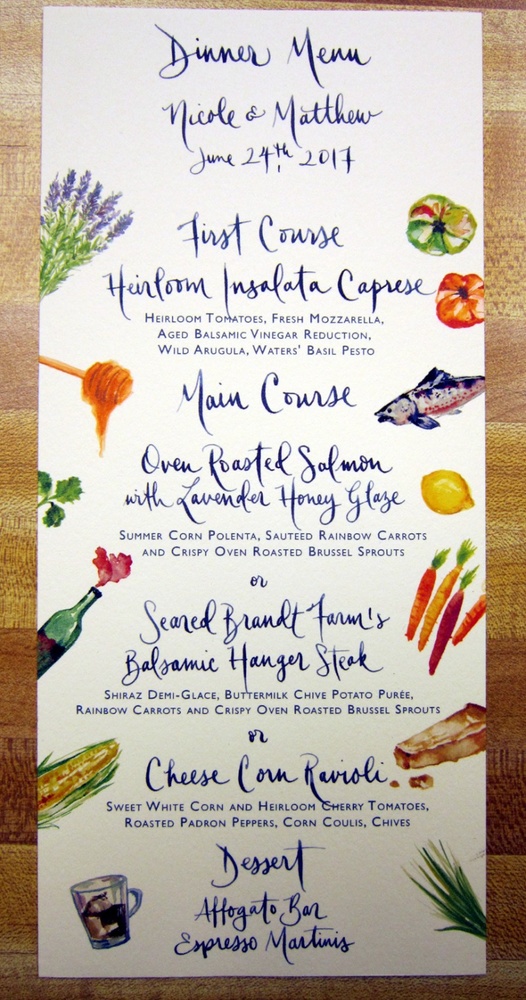 Dinner Menu
Nicole & Matthew
June 24th, 2017
First Course
Heirloom Insalata Caprese
Heirloom Tomatoes, Fresh Mozzarella,
Aged Balsamic Vinegar Reduction,
Wild Arugula, Waters' Basil Pesto
Main Course
Oven Roasted Salmon
with Lavender Honey Glaze
Summer Corn Polenta, Sauteed Rainbow Carrots
and Crispy Oven Roasted Brussel Sprouts
or
Seared Brandt Farm's
Balsamic Hanger Steak
Shiraz Demi-Glace, Buttermilk Chive Potato Purée,
Rainbow Carrots and Crispy Oven Roasted Brussel Sprouts
or
Cheese Corn Ravioli
Sweet White Corn and Heirloom Cherry Tomatoes,
Roasted Padron Peppers, Corn Coulis, Chives
Dessert
Affogato Bar
Espresso Martinis